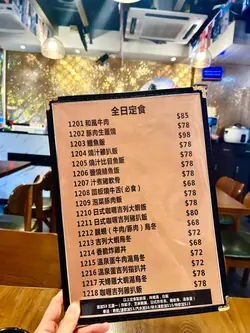 全日定食
1201 和風牛肉 $85
1202 豚肉生薑燒 $78
1203 鰻魚飯 $98
1204 燒汁雞扒飯 $78
1205 燒汁比目魚飯 $78
1206 鹽燒鯖魚飯 $78
1207 汁煮豬軟骨 $78
1208 甜柳燒牛舌(必食) $78
1209 泡菜豚肉飯 $78
1210 日式咖喱吉列大蝦飯 $78
1211 日式咖喱吉列豬扒飯 $78
1212 (牛肉/豚肉)烏冬 $78
1213 吉列大蝦烏冬 $78
1214 香脆炸雞丼 $78
1215 溫泉蛋牛肉湯烏冬 $78
1216 溫泉蛋吉列豬扒丼 $78
1217 天婦羅大蝦湯烏冬 $78
1218 咖喱吉列雞扒飯 $78